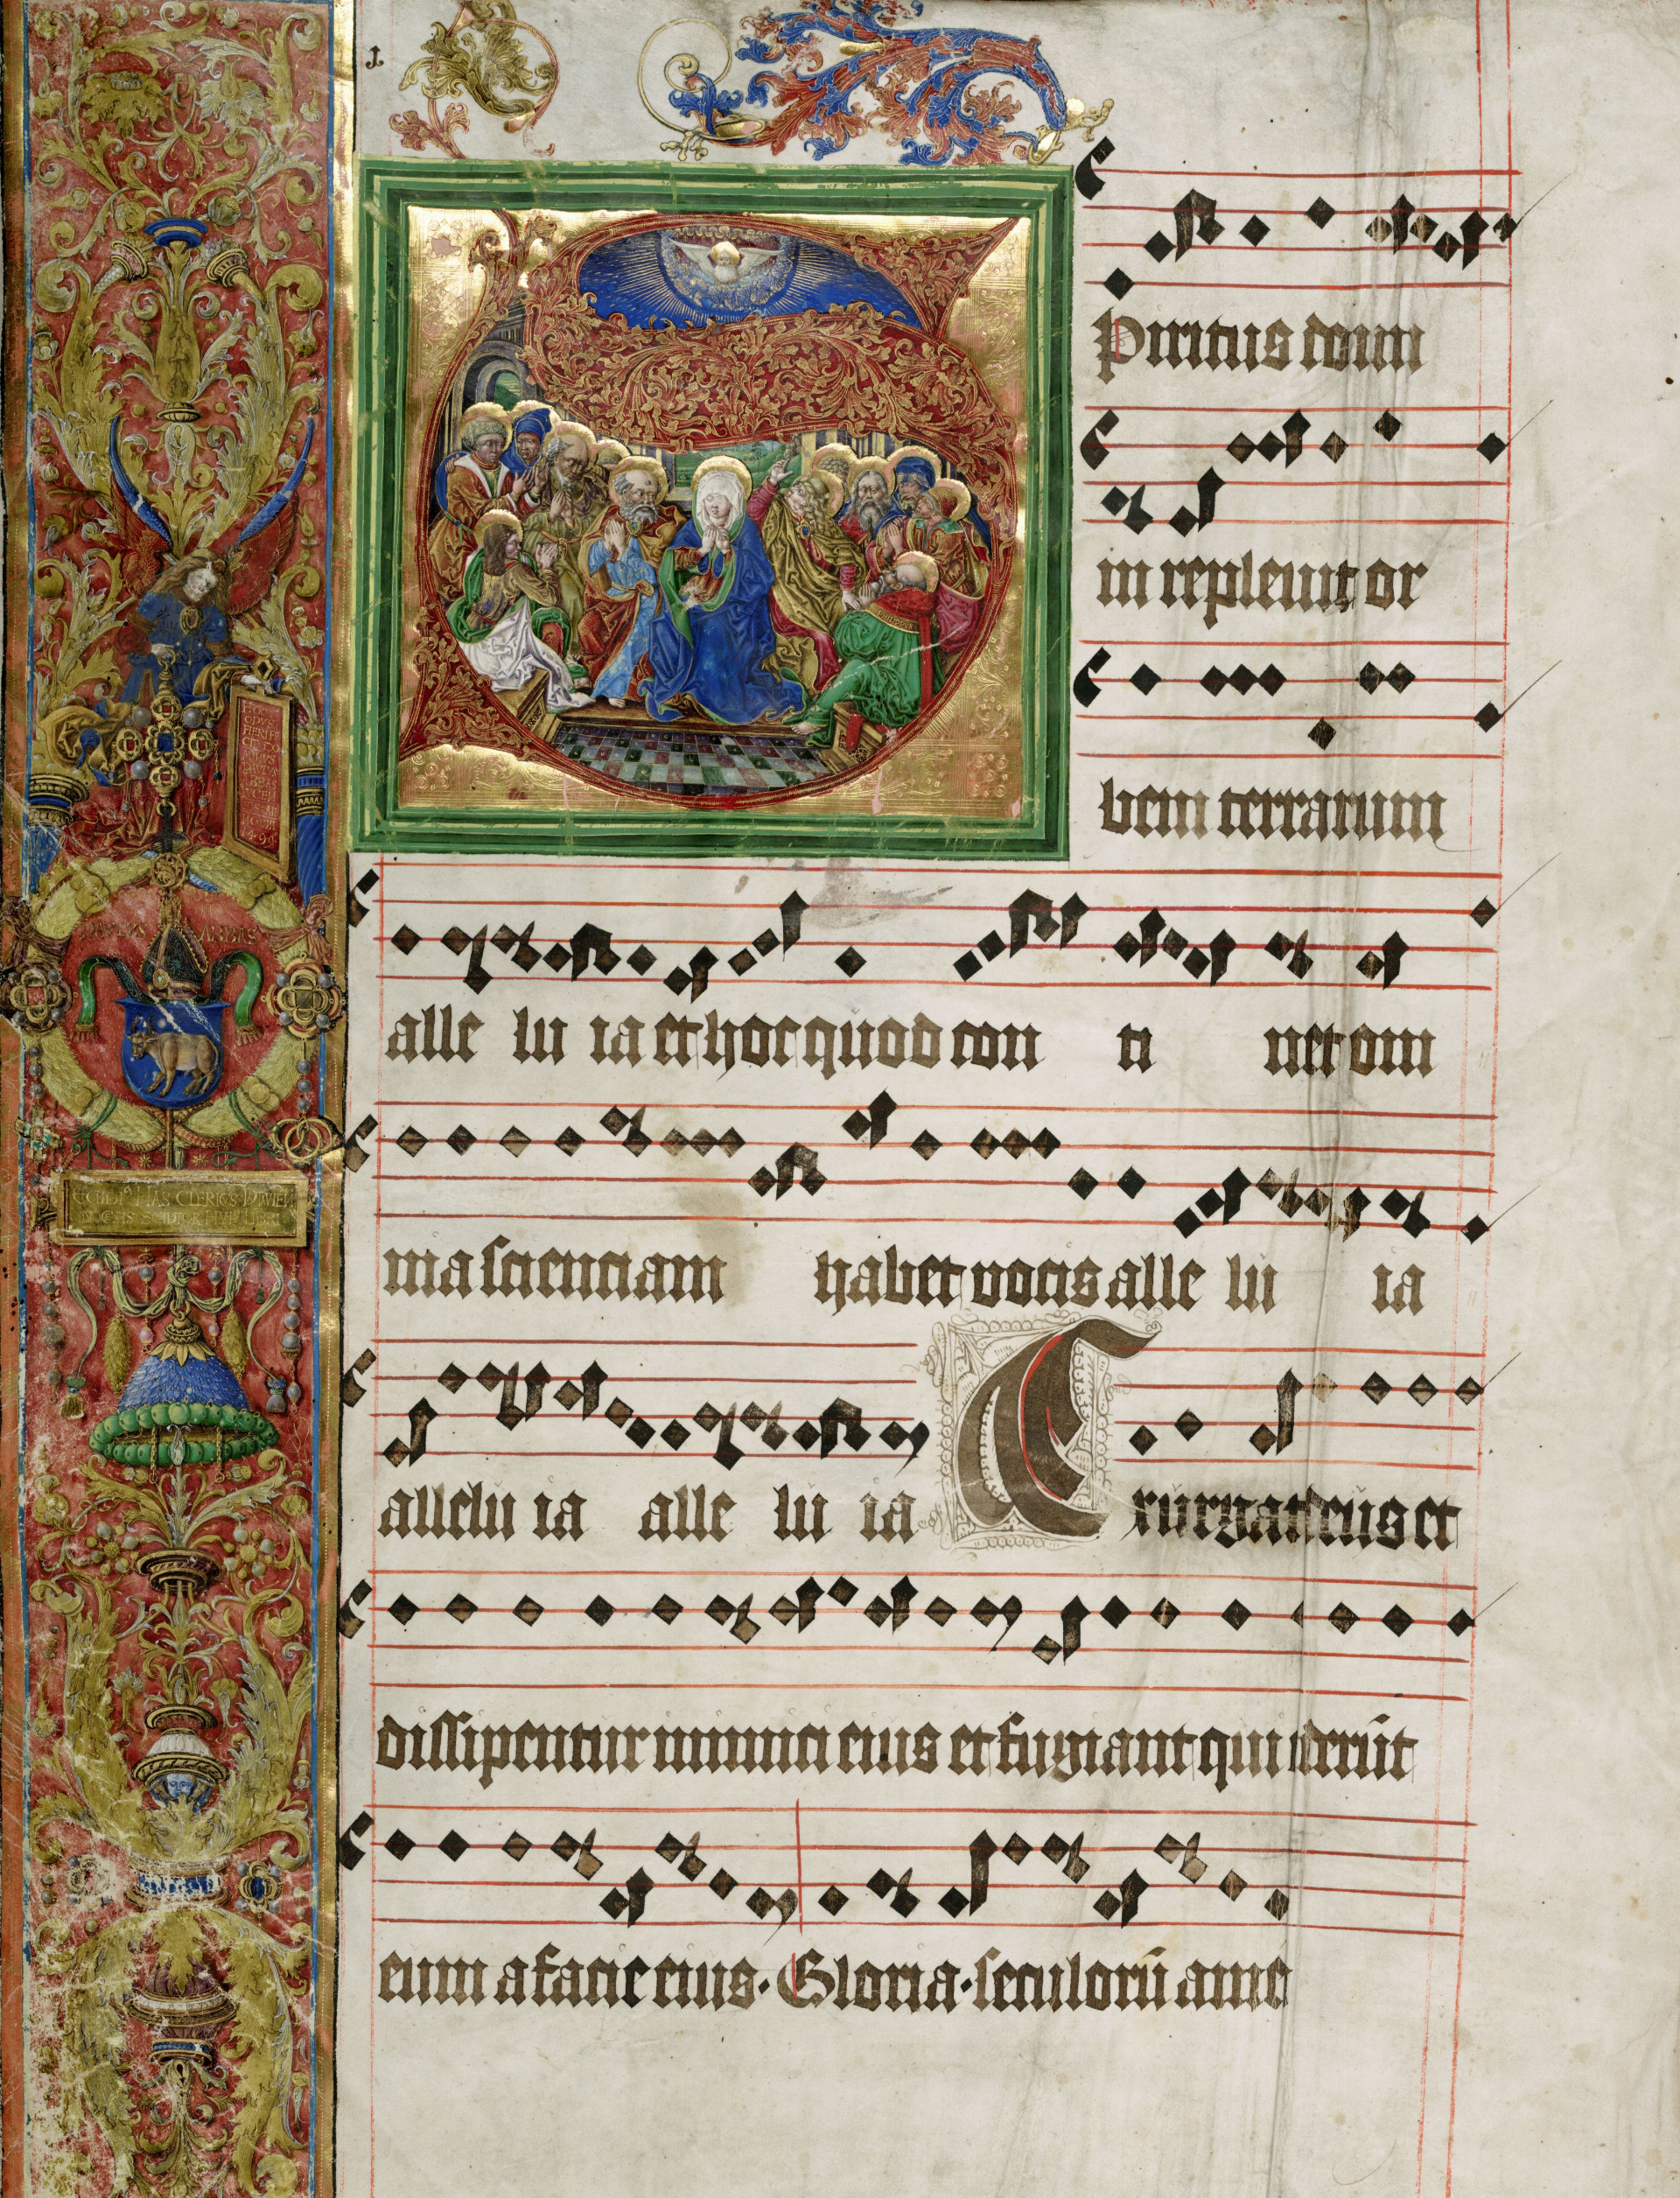 J
Spiritus domi
ni replevit or
bem terrarum
alle lu ia et hoc quod con ti net om
nia scienciam habet vocis alle lu ia
allelu ia alle lu ia Exurgat deus et
dissipentur inimici eius et fugiant qui oderūt
eum a facie eius. Gloria. seculorū ame
ABBAS
HAS CLERICS
1494